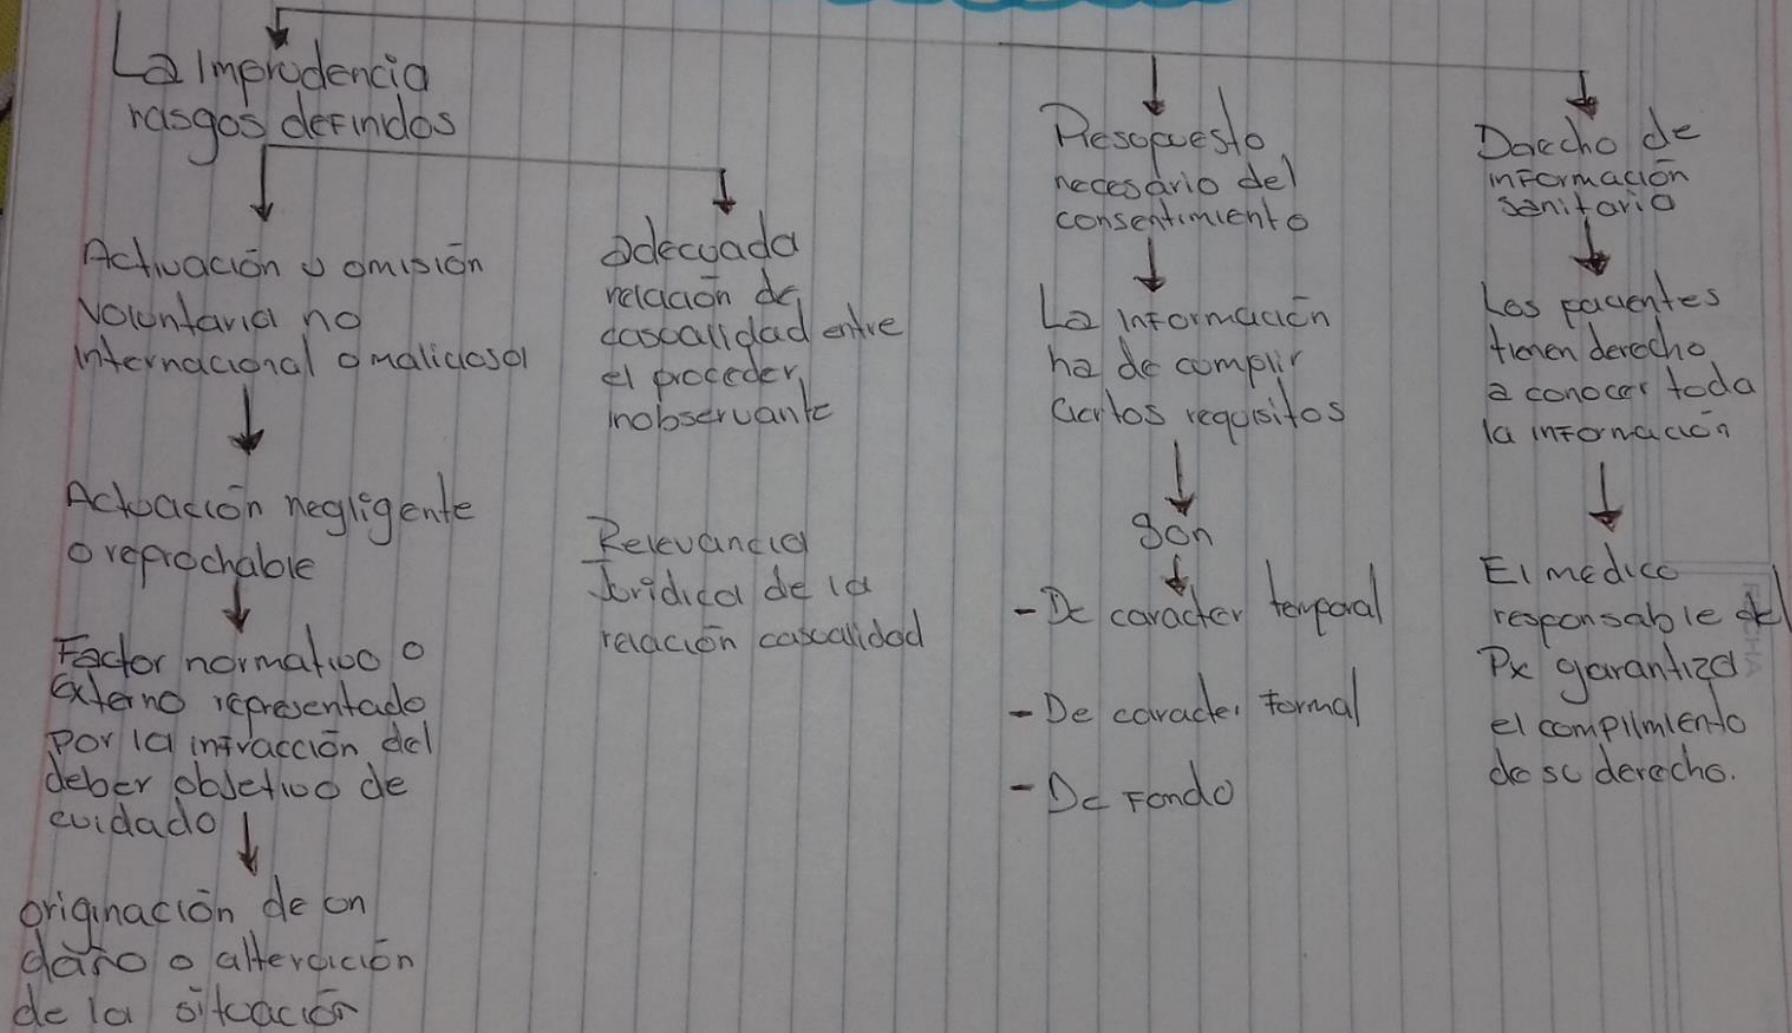 La Imprudencia
rasgos definidos
Activación u omisión
voluntaria no
internacional o maliciosa
Actuación negligente
o reprochable
Factor normativo o
externo representado
por la infracción del
deber objetivo de
cuidado
originación de un
daño o alteración
de la situación
adecuada
relación de
causalidad entre
el proceder
inobservante
Relevancia
Juridica de la
relación causalidad
Presupuesto
necesario del
consentimiento
La información
ha de cumplir
ciertos requisitos
Son
- De caracter temporal
- De caracter formal
- De Fondo
Derecho de
información
sanitaria
Los pacientes
tienen derecho
a conocer toda
la información
El medico
responsable del
Px garantiza
el complimiento
de su derecho.